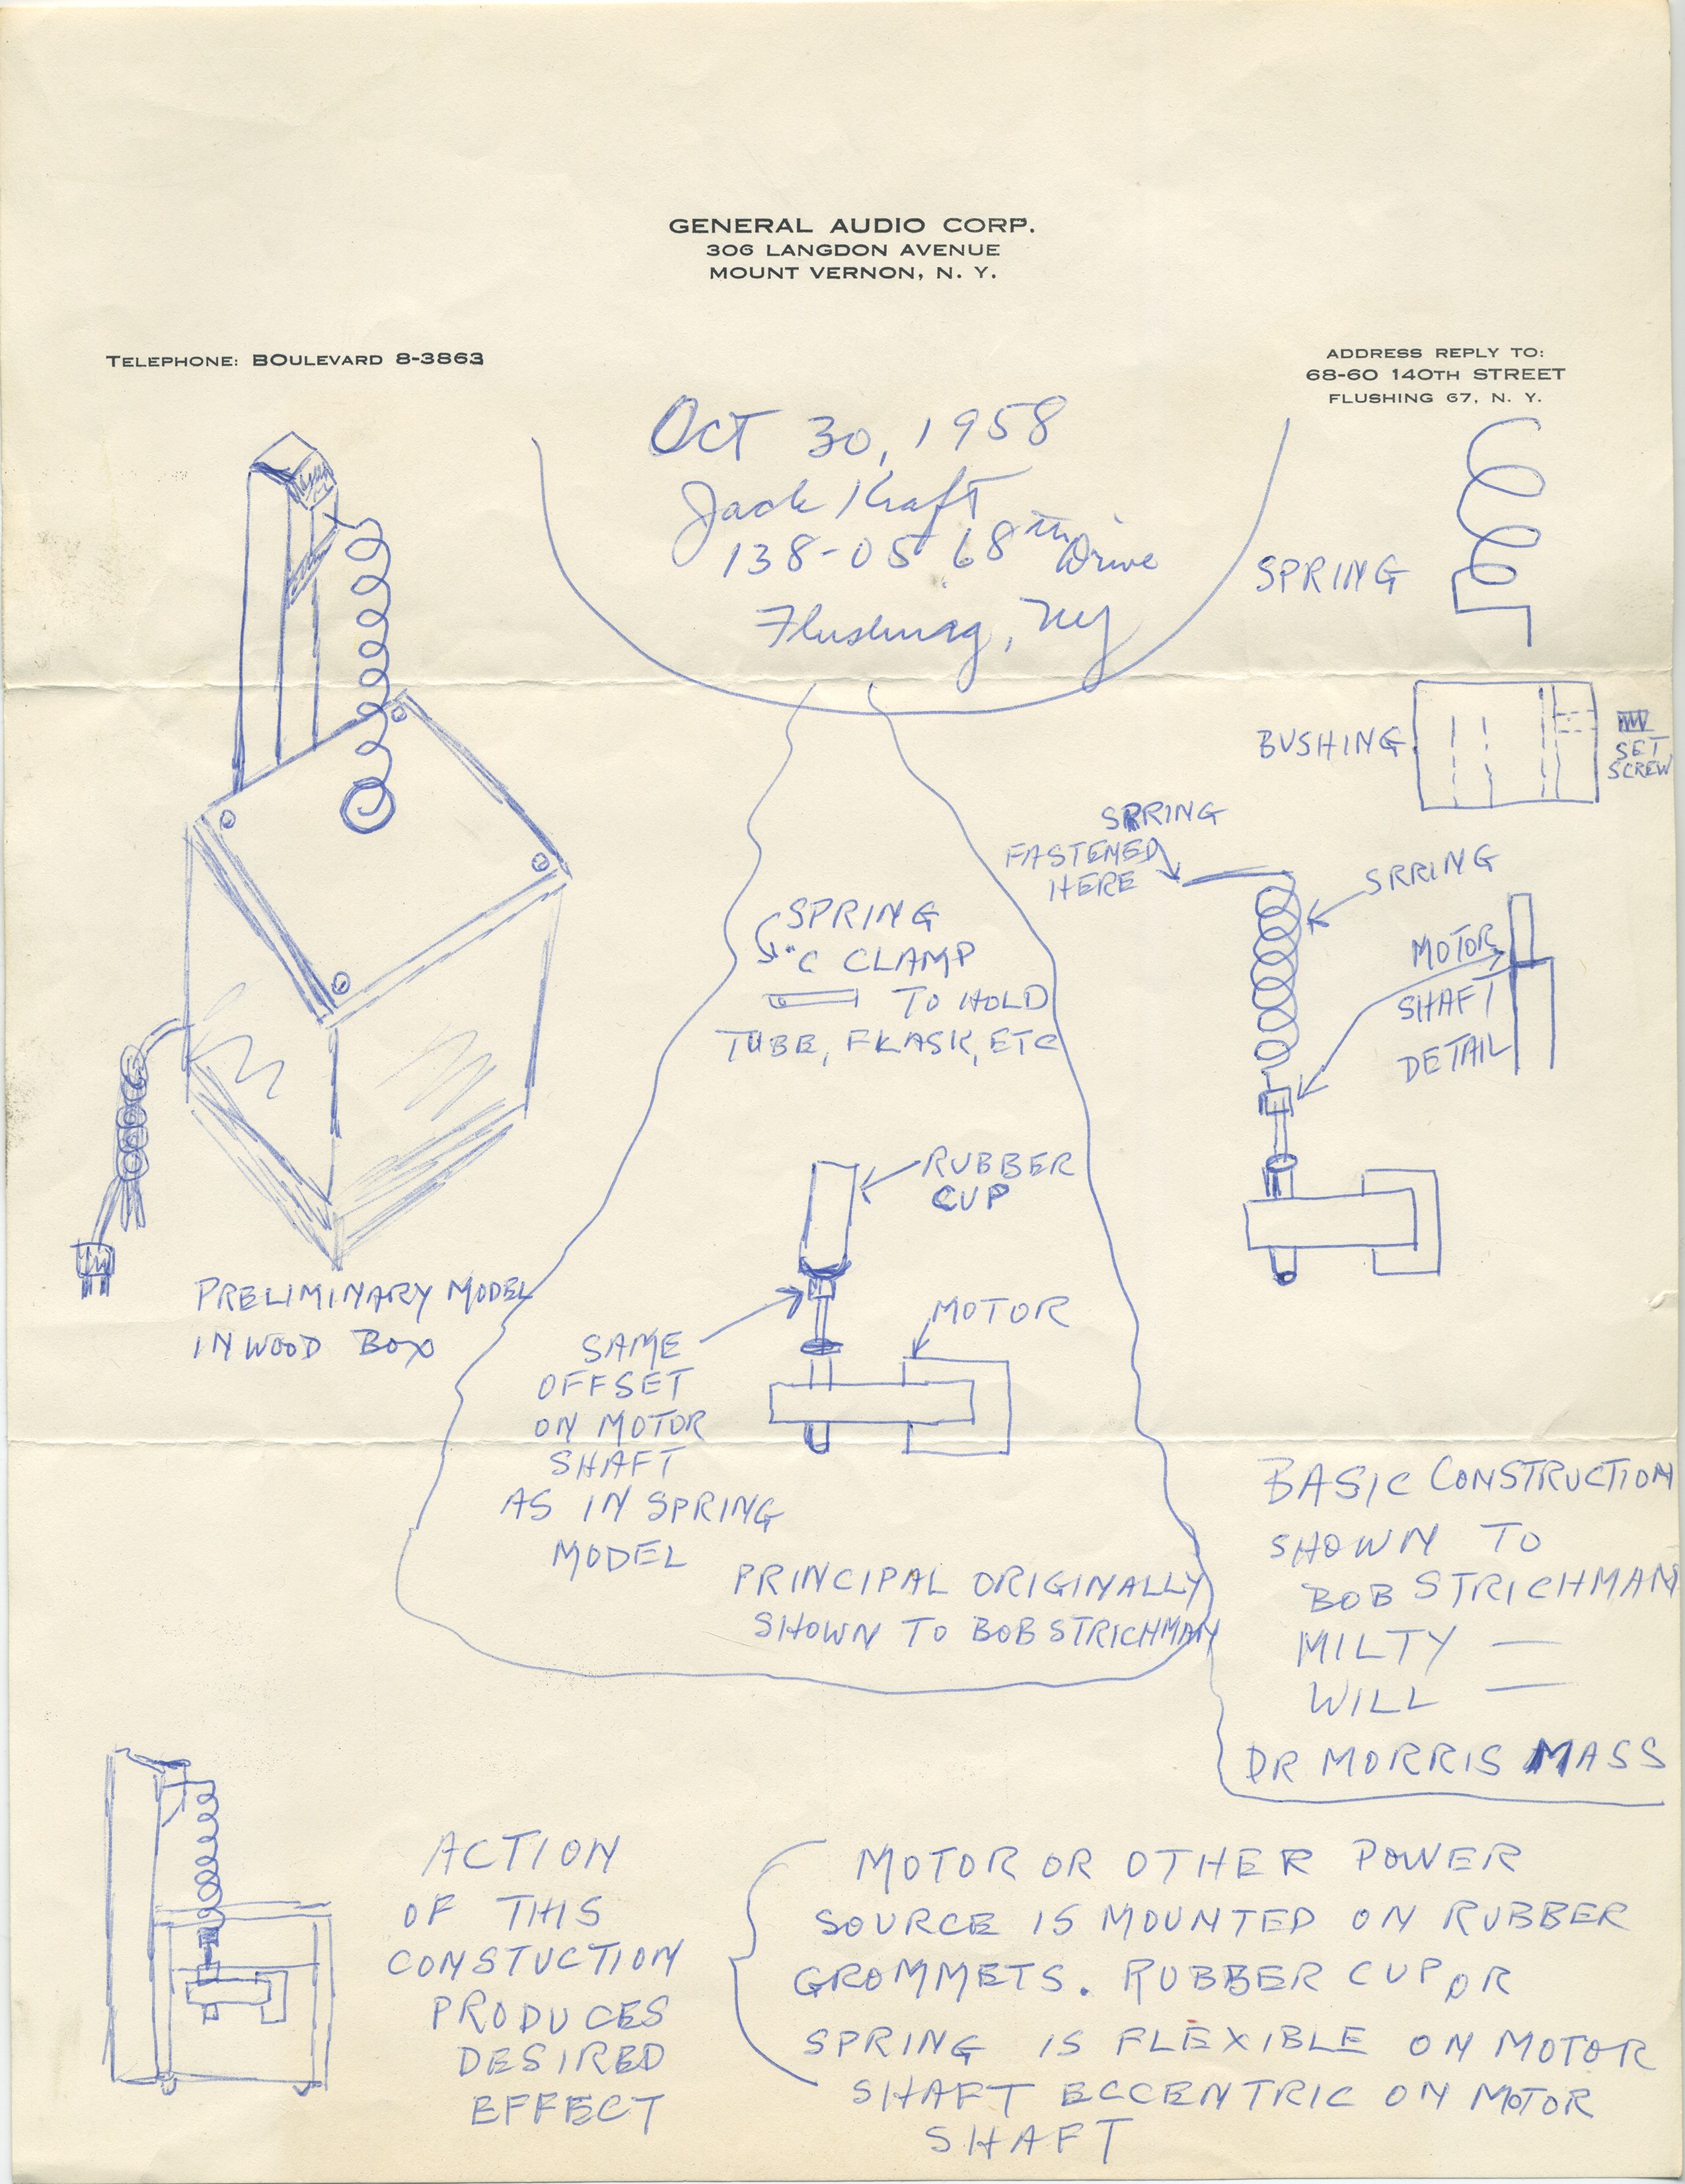 GENERAL AUDIO CORP.
306 LANGDON AVENUE
MOUNT VERNON, N. Y.
TELEPHONE: BOULEVARD 8-3863
ADDRESS REPLY TO:
68-60 140TH STREET
FLUSHING 67, N. Y.
Oct 30, 1958
Jack Kraft
138-05 68th Drive
Flushing, NY
SPRING
BUSHING
SET
SCREW
SPRING
FASTENED
HERE
SRRING
MOTOR
SHAFT
DETAIL
SPRING
"C CLAMP
TO HOLD
TUBE, FLASK, ETC
RUBBER
CUP
MOTOR
PRELIMINARY MODEL
IN WOOD BOX
SAME
OFFSET
ON MOTOR
SHAFT
AS IN SPRING
MODEL
PRINCIPAL ORIGINALLY
SHOWN TO BOB STRICHMAN
BASIC CONSTRUCTION
SHOWN TO
BOB STRICHMAN
MILTY —
WILL —
DR MORRIS MASS
ACTION
OF THIS
CONSTUCTION
PRODUCES
DESIRED
EFFECT
MOTOR OR OTHER POWER
SOURCE IS MOUNTED ON RUBBER
GROMMETS. RUBBER CUP OR
SPRING IS FLEXIBLE ON MOTOR
SHAFT ECCENTRIC ON MOTOR
SHAFT